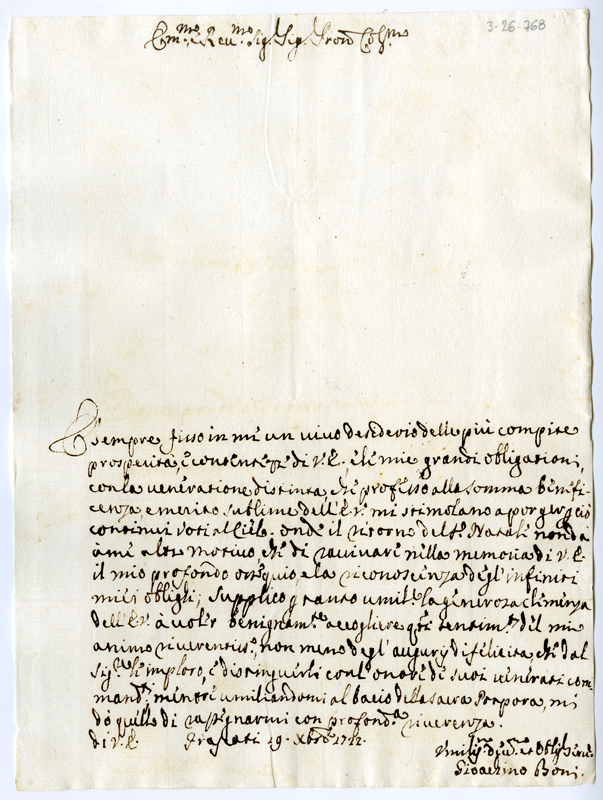 3-26-768
Em.mo e Reu.mo Sig.r Sig.r Pron Col.mo
È sempre fisso in me un uiuo desiderio delle più compite
prosperità, e contentezze di V.E. e le mie grandi obligationi,
con la ueneratione distinta che professo alla somma benefi-
cenza, e merito sublime dell'E.V. mi stimolano a porger p ciò
continui uoti al Cielo. onde il ritorno del S. Natale non dà
à me altro motiuo che di rauuiuare nella memoria di V.E.
il mio profondo ossequio, e la riconoscenza degl'infiniti
miei oblighi; supplico p tanto umil.te la generosa clemenza
dell'E.V. à uoler benignam.te accogliere q.ti sentim.ti del mio
animo riuerentiss.o, non meno degl'augurij di felicità, che dal
Sig.re le imploro, e distinguerli coll'onore di suoi uenerati com-
mandi, mentre umiliandomi al bacio della sacra Porpora, mi
dò quello di rassegnarmi con profond.a riuerenza.
di V.E. Frascati 19. Xbre 1722.
Umiliss.o Diu.mo et Oblig.mo Seru.re
Gioacchino Boni.